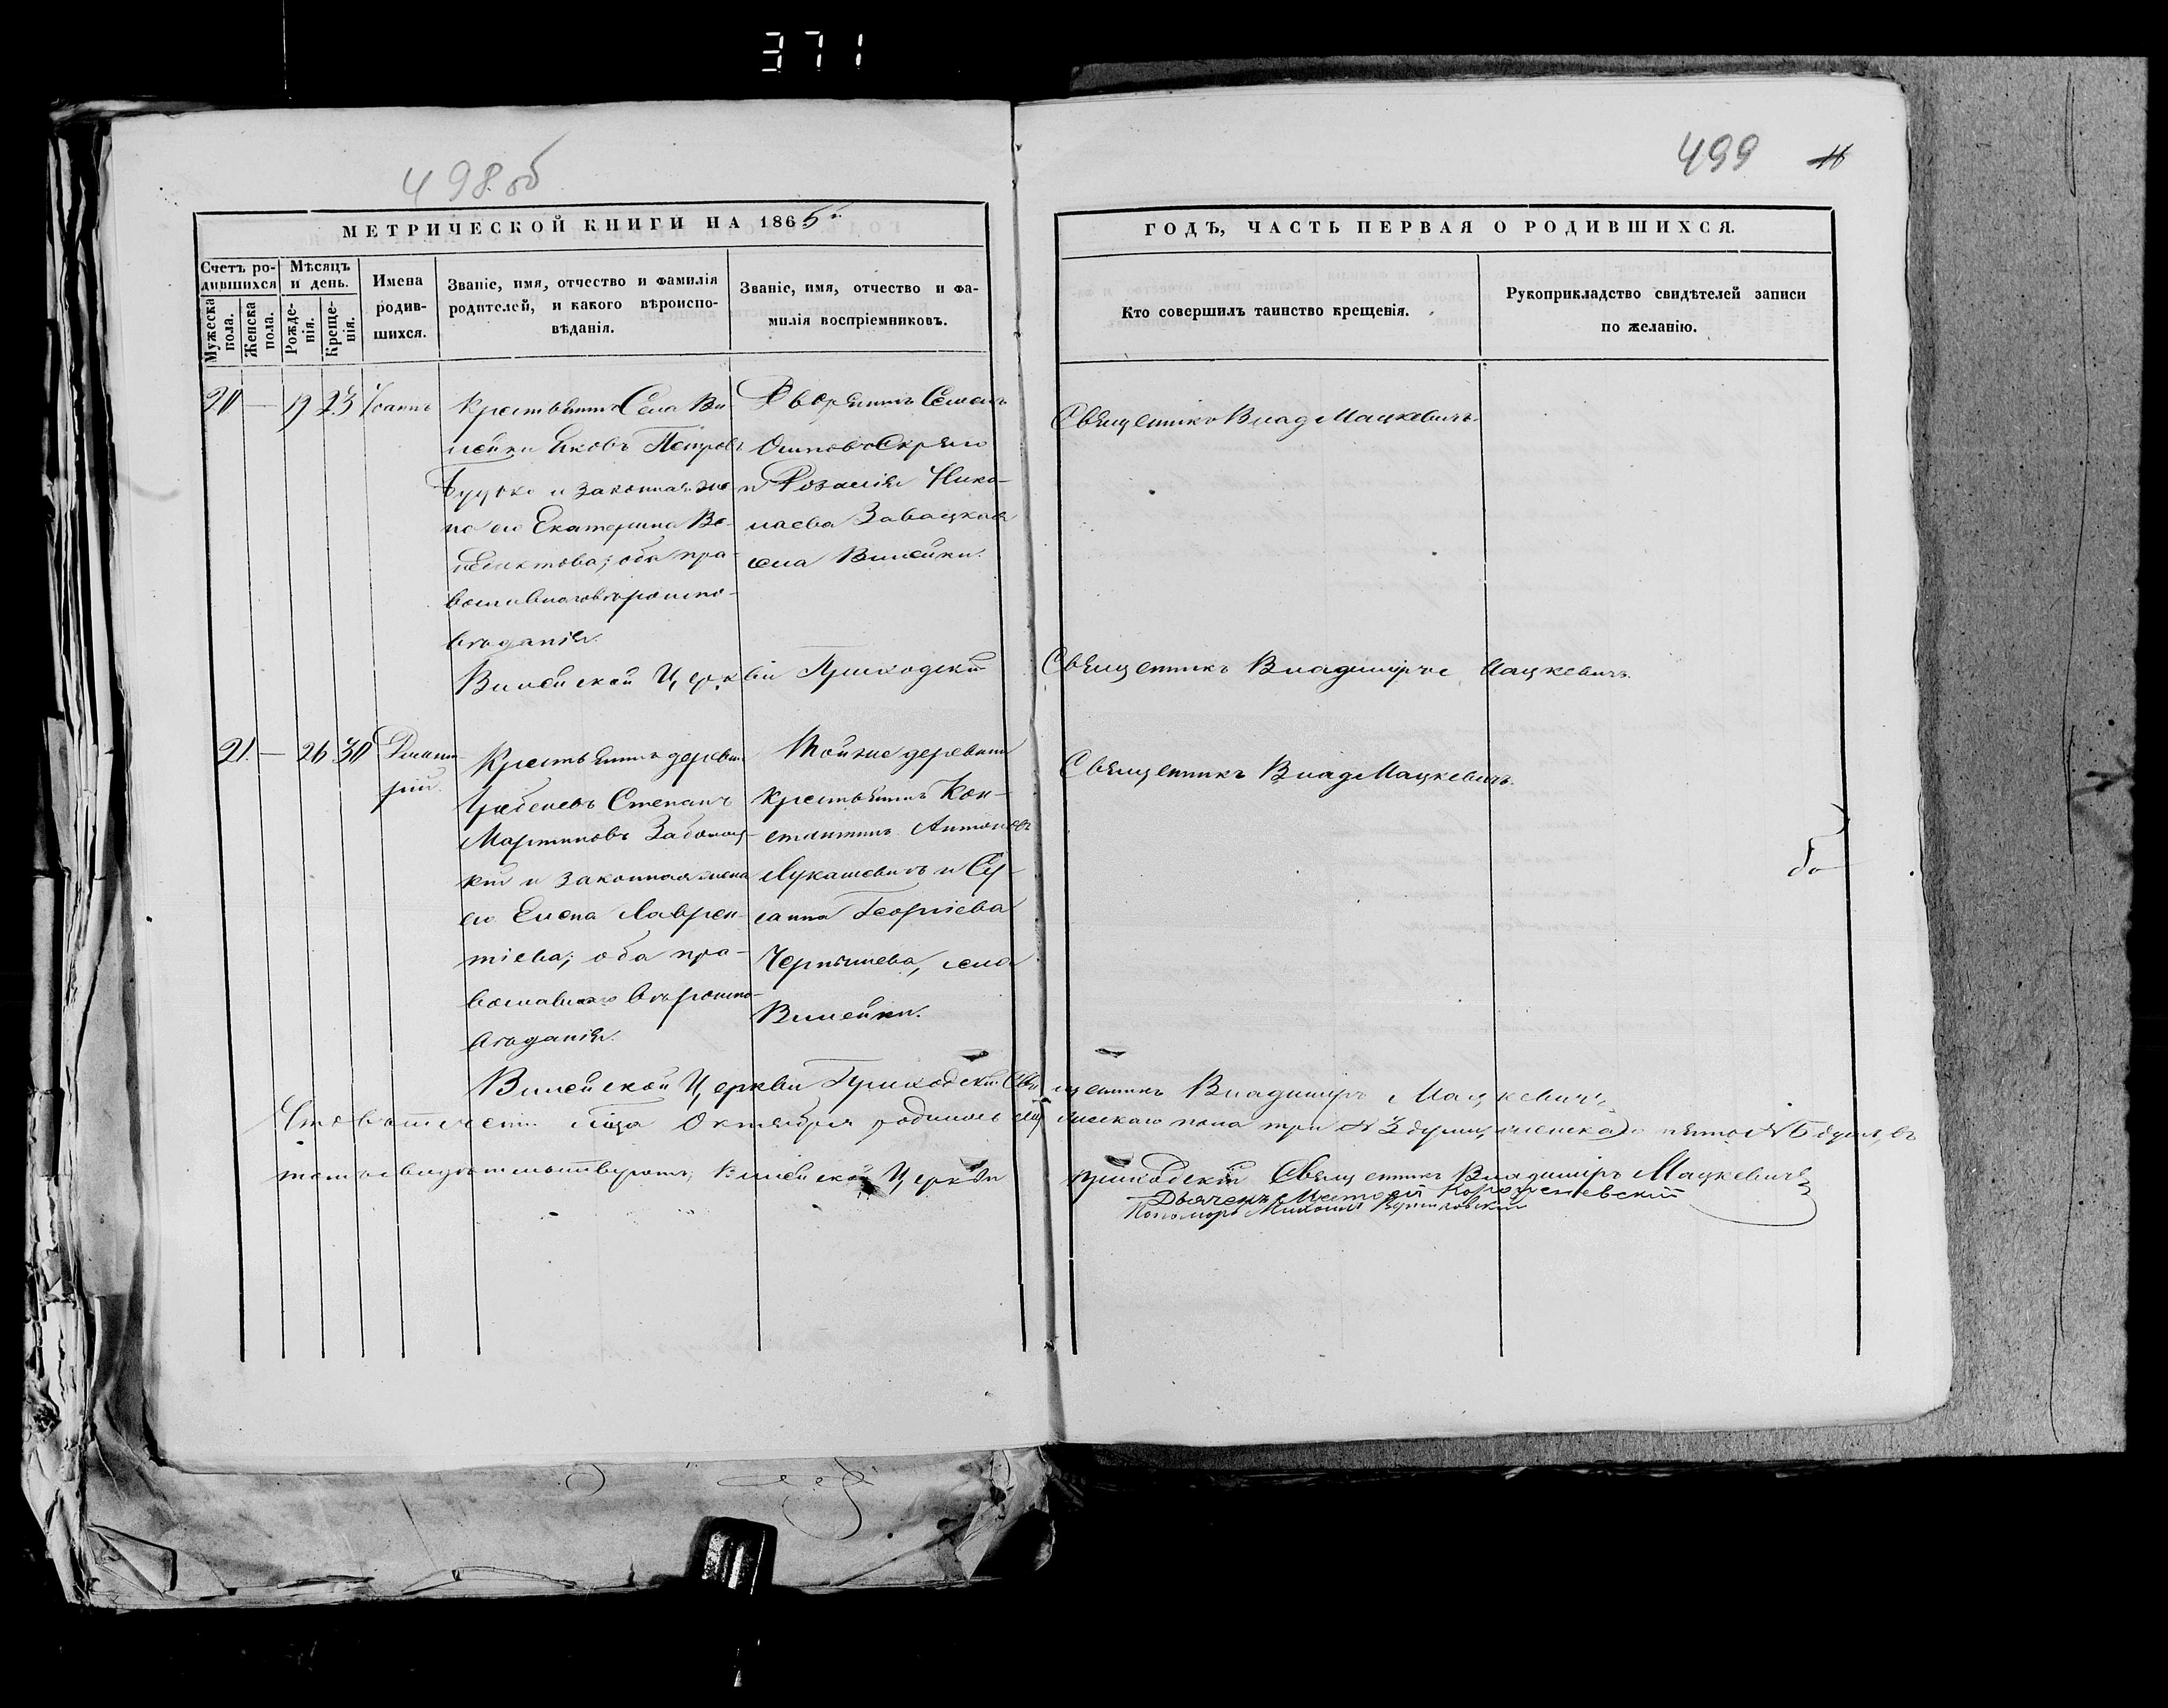 371
498об
499
11
МЕТРИЧЕСКОЙ КНИГИ НА 1865й
ГОДЪ, ЧАСТЬ ПЕРВАЯ О РОДИВШИХСЯ.
Счетъ родившихся
Мужеска пола.
Женска пола.
Мѣсяцъ и день.
Рожденія.
Крещенія.
Имена родившихся.
Званіе, имя, отчество и фамилія
родителей, и какого вѣроиспо-
вѣданія.
Званіе, имя, отчество и фа-
милія воспріемниковъ.
Кто совершилъ таинство крещенія.
Рукоприкладство свидѣтелей записи
по желанію.
20 — 19 23 Іоаннъ
Крестьянинъ Села Ви
лейки Яковъ Петровъ
и законная же-
на его Екатерина Ве-
недиктова; оба пра-
вославнаго вѣроиспо-
вѣданія.
Дворянинъ Семенъ
Осиповъ
и Розалія Нико-
лаева Завацкая
села Вилейки.
Священникъ Влад Мацкевичъ.
Вилейской Церкви Приходскій Священникъ Владиміръ Мацкевичъ.
21. — 26 30 Димит-
рій.
Крестьянинъ деревни
Степанъ
Мартиновъ Заболоц-
кій и законная жена
его Елена Лаврен-
тіева; оба пра-
вославнаго вѣроиспо-
вѣданія.
Той же деревни
крестьянинъ Кон-
стантинъ Антоновъ
Лукашевичъ и Су-
санна Георгіева
Чернышева, села
Вилейки.
Священникъ Влад Мацкевичъ.
Вилейской Церкви Приходскій Священникъ Владиміръ Мацкевичъ
Что въ теченіи Октября родилось мужескаго пола три № 3 души, женска
томъ свидѣтельствуютъ, Вилейской Церкви приходскій Священникъ Владиміръ Мацкевичъ
Дьячекъ
Пономарь Михаилъ